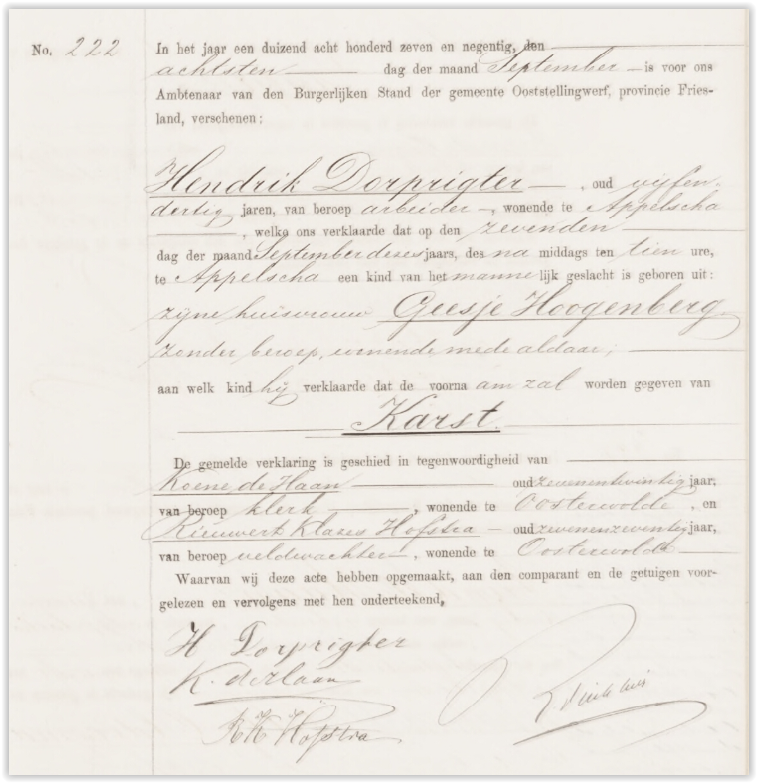 No. 222
In het jaar een duizend acht honderd zeven en negentig, den
achtsten dag der maand September is voor ons
Ambtenaar van den Burgerlijken Stand der gemeente Ooststellingwerf, provincie Fries-
land, verschenen:
Hendrik Dorprigter, oud vijfen-
dertig jaren, van beroep arbeider, wonende te Appelscha
, welke ons verklaarde dat op den zevenden
dag der maand September dezes jaars, des na middags ten tien ure,
te Appelscha een kind van het manne lijk geslacht is geboren uit:
zijne huisvrouw Geesje Hoogenberg
zonder beroep, wonende mede aldaar;
aan welk kind hij verklaarde dat de voorna am zal worden gegeven van
Karst.
De gemelde verklaring is geschied in tegenwoordigheid van
Koene de Haan oud zevenentwintig jaar,
van beroep klerk, wonende te Oosterwolde, en
Rieuwert Klazes Hofstra oud zevenenzeventig jaar,
van beroep veldwachter, wonende te Oosterwolde
Waarvan wij deze acte hebben opgemaakt, aan den comparant en de getuigen voor-
gelezen en vervolgens met hen onderteekend,
H Dorprigter
K. de Haan
RK Hofstra